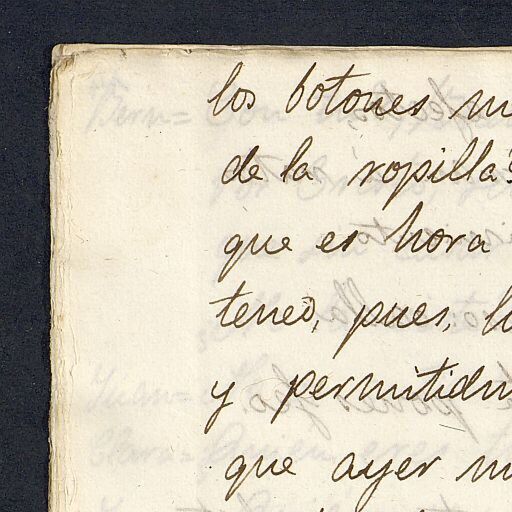 los botones m
de la ropilla?
que es hora
tened, pues, l
y permitidm
que ayer m